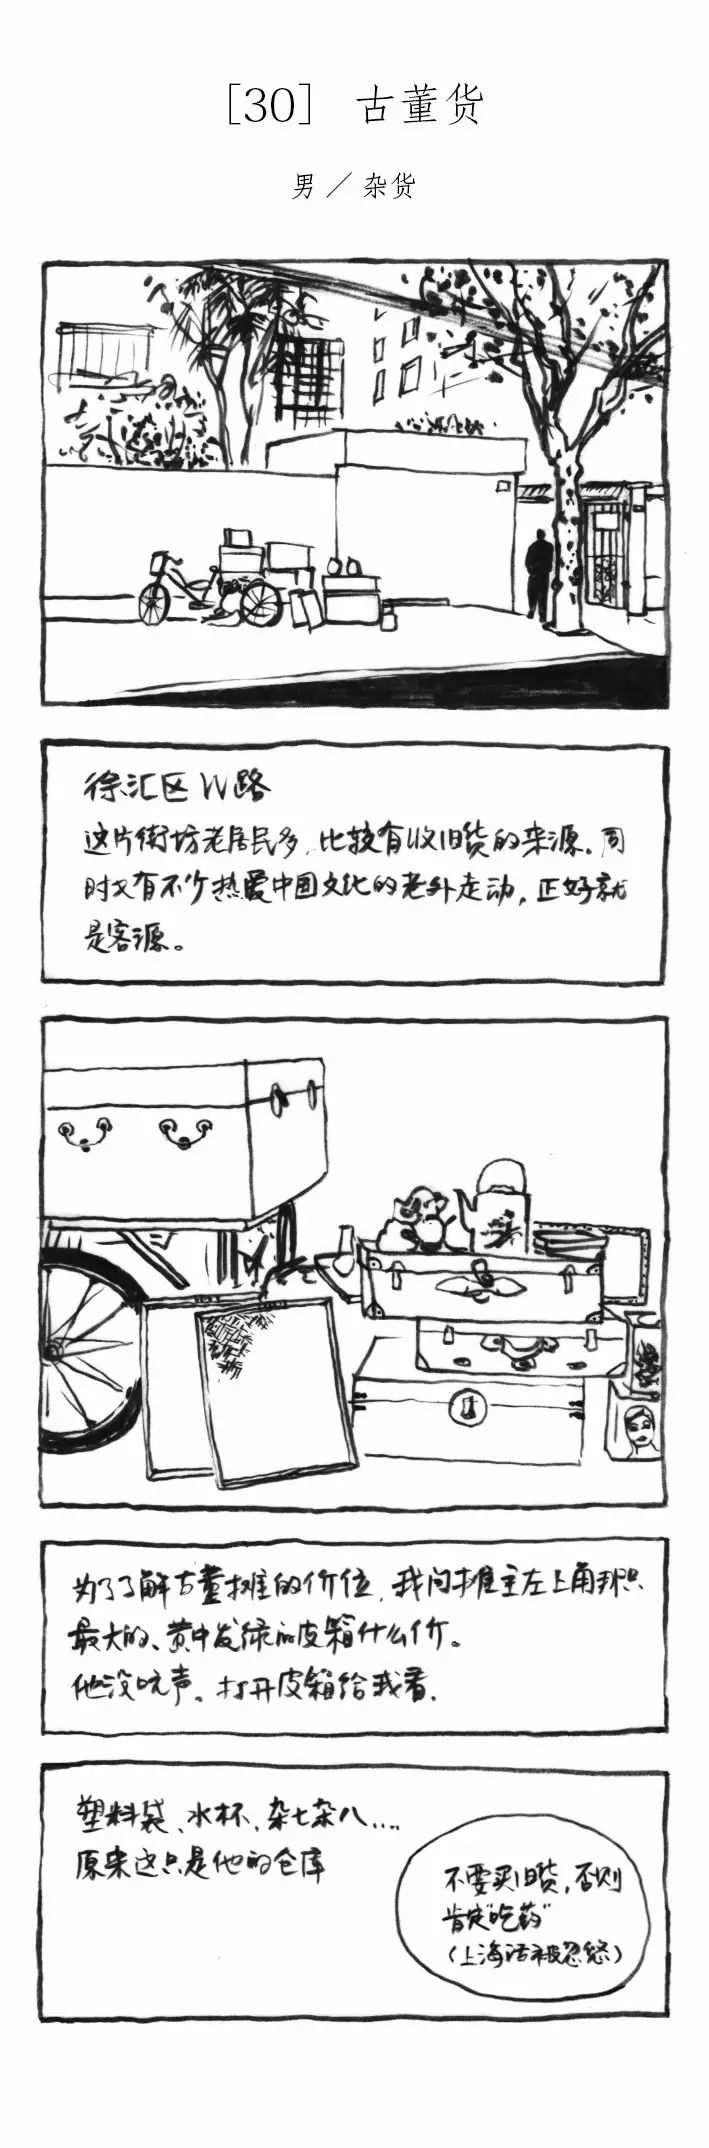 [30] 古董货
男／杂货
徐汇区 W路
这片街坊老居民多，比较有收旧货的来源。同
时又有不少热爱中国文化的老外走动，正好就
是客源。
为了了解古董摊的价位，我问摊主左上角那只
最大的、黄中发绿的皮箱什么价。
他没吭声。打开皮箱给我看.
塑料袋、水杯，杂七杂八....
原来这只是他的仓库
不要买旧货，否则
肯定"吃药"
（上海话被忽悠）